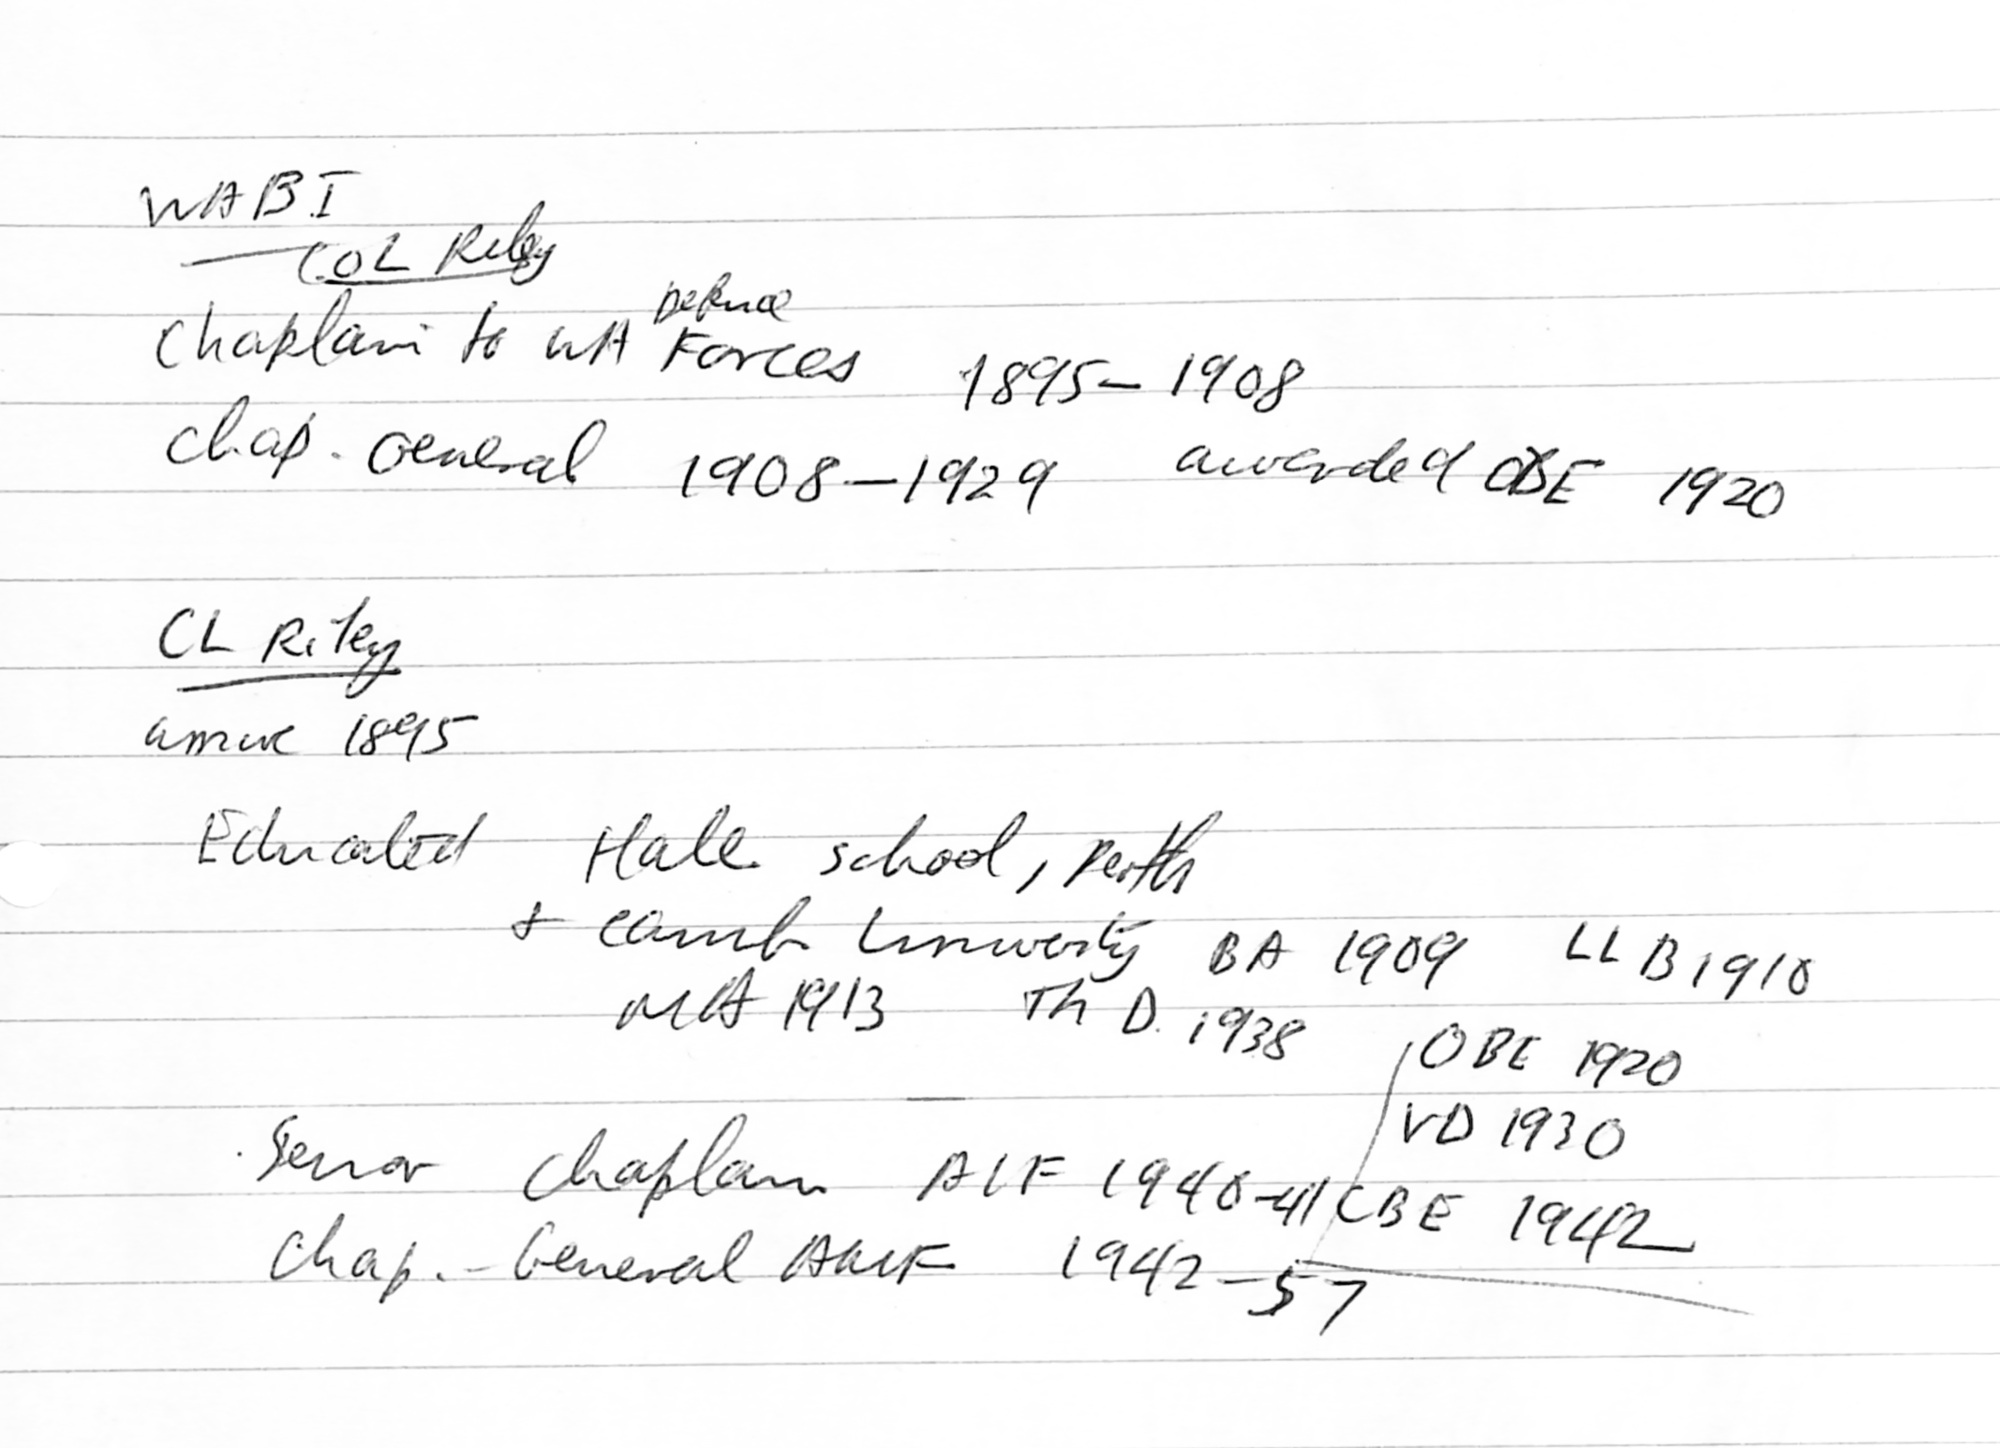 WABI
— COL Riley
Chaplain to WA Defence Forces 1895 – 1908
Chap. General 1908 – 1929 awarded OBE 1920
CL Riley
arrive 1895
Educated Hale school, Perth
+ Camb University BA 1909 LLB 1910
MA 1913 Th D. 1938
OBE 1920
VD 1930
Senior Chaplain AIF 1940-41
CBE 1942
Chap. - General AMF 1942 – 57